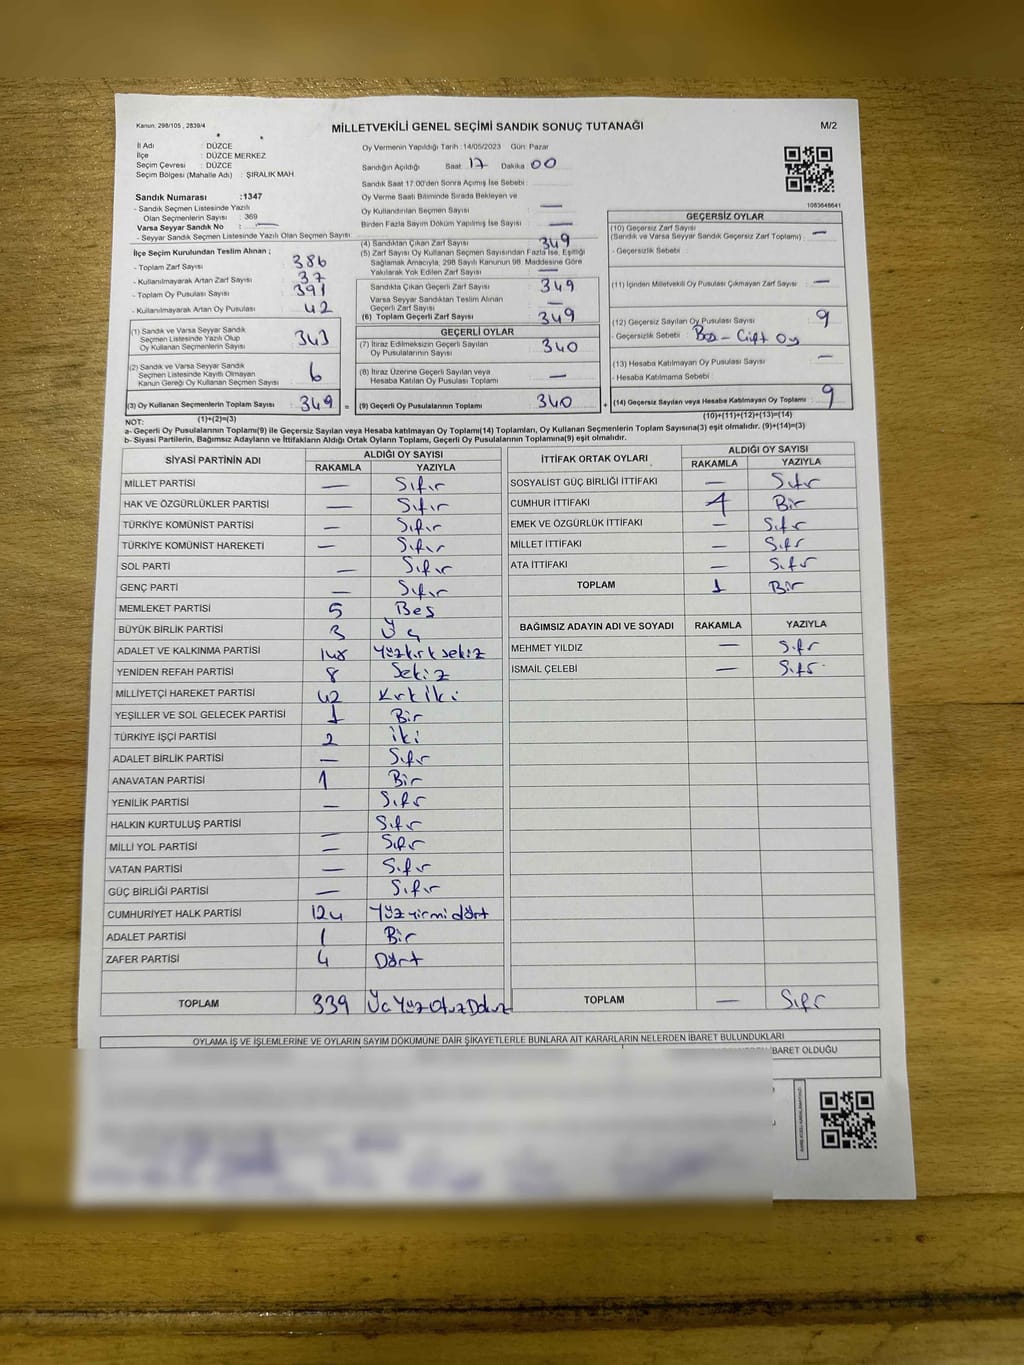 Kanun: 298/105 , 2839/4
MİLLETVEKİLİ GENEL SEÇİMİ SANDIK SONUÇ TUTANAĞI
M/2
İl Adı : DÜZCE
İlçe : DÜZCE MERKEZ
Seçim Çevresi : DÜZCE
Seçim Bölgesi (Mahalle Adı) : ŞIRALIK MAH
Sandık Numarası :1347
- Sandık Seçmen Listesinde Yazılı
Olan Seçmenlerin Sayısı : 369
Varsa Seyyar Sandık No : —
- Seyyar Sandık Seçmen Listesinde Yazılı Olan Seçmen Sayısı
İlçe Seçim Kurulundan Teslim Alınan ;
- Toplam Zarf Sayısı : 386
- Kullanılmayarak Artan Zarf Sayısı : 37
- Toplam Oy Pusulası Sayısı : 391
- Kullanılmayarak Artan Oy Pusulası : 42
(1) Sandık ve Varsa Seyyar Sandık
Seçmen Listesinde Yazılı Olup
Oy Kullanan Seçmenlerin Sayısı : 343
(2) Sandık ve Varsa Seyyar Sandık
Seçmen Listesinde Kayıtlı Olmayan
Kanun Gereği Oy Kullanan Seçmen Sayısı : 6
(3) Oy Kullanan Seçmenlerin Toplam Sayısı : 349 =
(1)+(2)=(3)
Oy Vermenin Yapıldığı Tarih : 14/05/2023 Gün: Pazar
Sandığın Açıldığı Saat: 17 Dakika: 00
Sandık Saat 17:00'den Sonra Açımış İse Sebebi :
Oy Verme Saati Bitiminde Sırada Bekleyen ve
Oy Kullandırılan Seçmen Sayısı : —
Birden Fazla Sayım Döküm Yapılmış İse Sayısı : —
(4) Sandıktan Çıkan Zarf Sayısı : 349
(5) Zarf Sayısı Oy Kullanan Seçmen Sayısından Fazla İse, Eşitliği
Sağlamak Amacıyla, 298 Sayılı Kanunun 98. Maddesine Göre
Yakılarak Yok Edilen Zarf Sayısı : —
Sandıkta Çıkan Geçerli Zarf Sayısı : 349
Varsa Seyyar Sandıktan Teslim Alınan
Geçerli Zarf Sayısı : —
(6) Toplam Geçerli Zarf Sayısı : 349
GEÇERLİ OYLAR
(7) İtiraz Edilmeksizin Geçerli Sayılan
Oy Pusulalarının Sayısı : 340
(8) İtiraz Üzerine Geçerli Sayılan veya
Hesaba Katılan Oy Pusulası Toplamı : —
(9) Geçerli Oy Pusulalarının Toplamı : 340 +
1083648641
GEÇERSİZ OYLAR
(10) Geçersiz Zarf Sayısı
(Sandık ve Varsa Seyyar Sandık Geçersiz Zarf Toplamı) : —
- Geçersizlik Sebebi :
(11) İçinden Milletvekili Oy Pusulası Çıkmayan Zarf Sayısı : —
(12) Geçersiz Sayılan Oy Pusulası Sayısı : 9
- Geçersizlik Sebebi : Boş - Çift Oy
(13) Hesaba Katılmayan Oy Pusulası Sayısı : —
- Hesaba Katılmama Sebebi :
(14) Geçersiz Sayılan veya Hesaba Katılmayan Oy Toplamı : 9
(10)+(11)+(12)+(13)=(14)
NOT:
a- Geçerli Oy Pusulalarının Toplamı(9) ile Geçersiz Sayılan veya Hesaba katılmayan Oy Toplamı(14) Toplamları, Oy Kullanan Seçmenlerin Toplam Sayısına(3) eşit olmalıdır. (9)+(14)=(3)
b- Siyasi Partilerin, Bağımsız Adayların ve İttifakların Aldığı Ortak Oyların Toplamı, Geçerli Oy Pusulalarının Toplamına(9) eşit olmalıdır.
SİYASİ PARTİNİN ADI ALDIĞI OY SAYISI
RAKAMLA YAZIYLA
MİLLET PARTİSİ — Sıfır
HAK VE ÖZGÜRLÜKLER PARTİSİ — Sıfır
TÜRKİYE KOMÜNİST PARTİSİ — Sıfır
TÜRKİYE KOMÜNİST HAREKETİ — Sıfır
SOL PARTİ — Sıfır
GENÇ PARTİ — Sıfır
MEMLEKET PARTİSİ 5 Beş
BÜYÜK BİRLİK PARTİSİ 3 Üç
ADALET VE KALKINMA PARTİSİ 148 Yüzkırk sekiz
YENİDEN REFAH PARTİSİ 8 Sekiz
MİLLİYETÇİ HAREKET PARTİSİ 42 Kırkiki
YEŞİLLER VE SOL GELECEK PARTİSİ 1 Bir
TÜRKİYE İŞÇİ PARTİSİ 2 İki
ADALET BİRLİK PARTİSİ — Sıfır
ANAVATAN PARTİSİ 1 Bir
YENİLİK PARTİSİ — Sıfır
HALKIN KURTULUŞ PARTİSİ — Sıfır
MİLLİ YOL PARTİSİ — Sıfır
VATAN PARTİSİ — Sıfır
GÜÇ BİRLİĞİ PARTİSİ — Sıfır
CUMHURİYET HALK PARTİSİ 124 Yüz yirmi dört
ADALET PARTİSİ 1 Bir
ZAFER PARTİSİ 4 Dört
TOPLAM 339 Üç Yüz Otuz Dokuz
İTTİFAK ORTAK OYLARI ALDIĞI OY SAYISI
RAKAMLA YAZIYLA
SOSYALİST GÜÇ BİRLİĞİ İTTİFAKI — Sıfır
CUMHUR İTTİFAKI 1 Bir
EMEK VE ÖZGÜRLÜK İTTİFAKI — Sıfır
MİLLET İTTİFAKI — Sıfır
ATA İTTİFAKI — Sıfır
TOPLAM 1 Bir
BAĞIMSIZ ADAYIN ADI VE SOYADI RAKAMLA YAZIYLA
MEHMET YILDIZ — Sıfır
İSMAİL ÇELEBİ — Sıfır
TOPLAM — Sıfır
OYLAMA İŞ VE İŞLEMLERİNE VE OYLARIN SAYIM DÖKÜMÜNE DAİR ŞİKAYETLERLE BUNLARA AİT KARARLARIN NELERDEN İBARET BULUNDUKLARI
BARET OLDUĞU